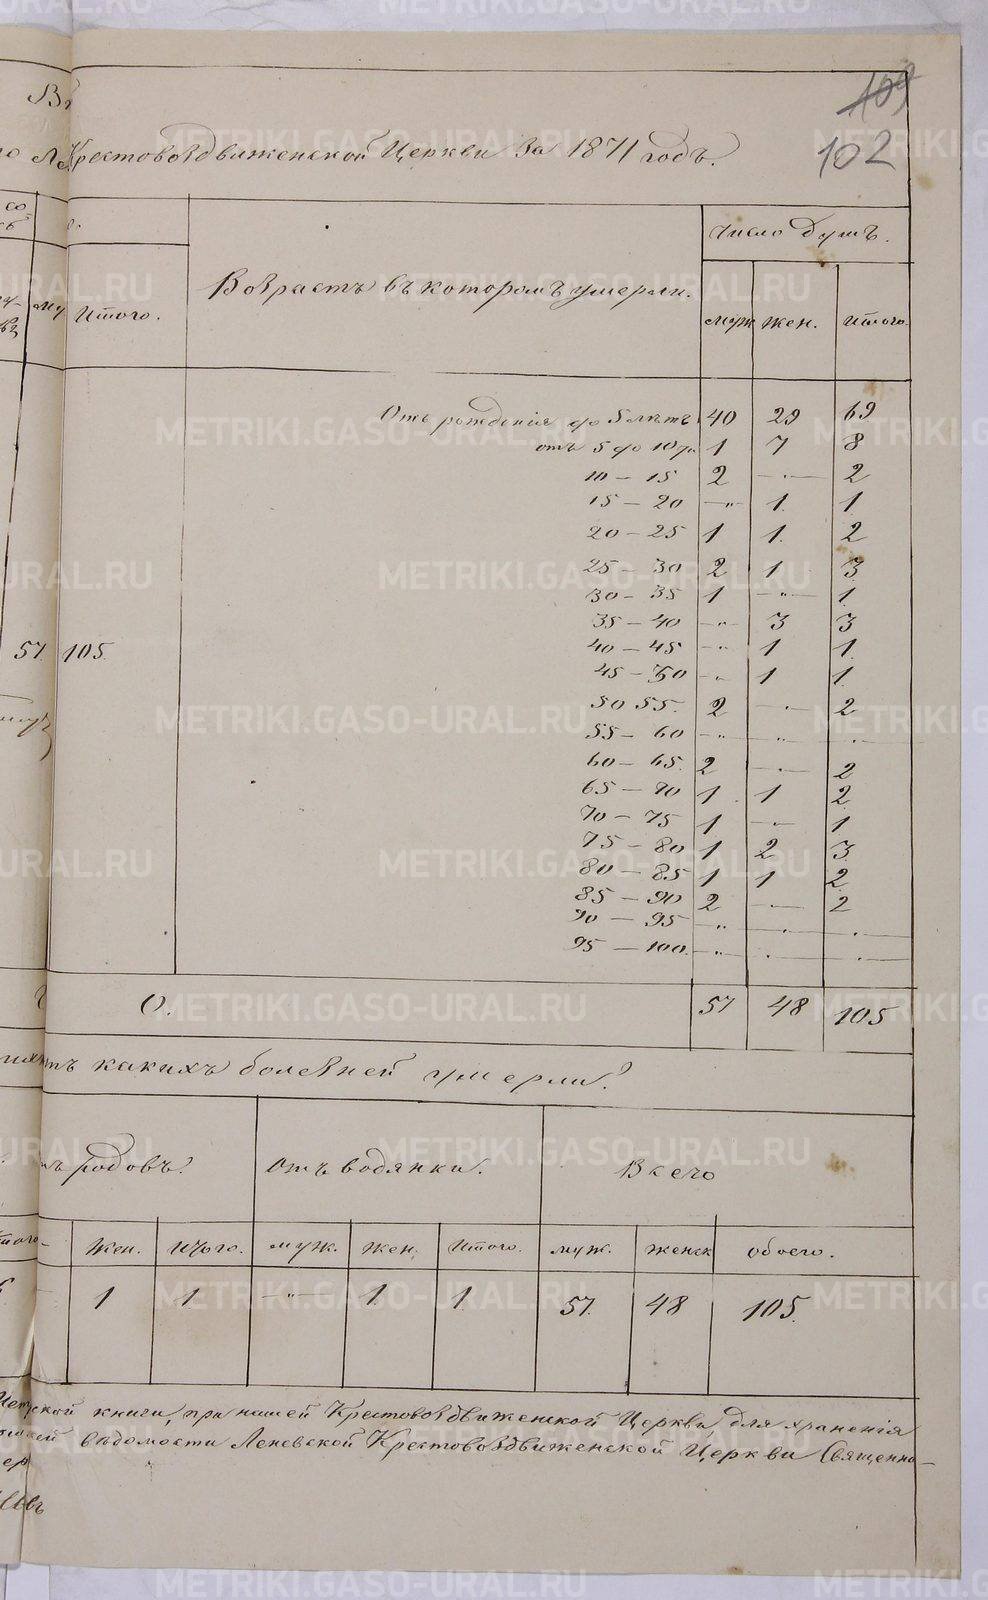 109
102
Вѣ
Крестовоздвиженской Церкви за 1871 годъ.
Число душъ.
Итого.
Возрастъ въ которомъ умерли.
муж жен. итого.
Отъ рожденія до 5 лѣтъ 40 29 69
отъ 5 до 10 1 7 8
10 — 15 2 — · — 2
15 — 20 — „ 1 1
20 — 25 1 1 2
25 — 30 2 1 3
30 — 35 1 — „ — 1
35 — 40 — „ 3 3
40 — 45 — „ 1 1
45 — 50 — „ 1 1
50 55. 2 — · — 2
55 — 60 — „ — „ — ·
60 — 65 2 — · — 2
65 — 70 1 1 2
70 — 75 1 — „ — 1
75 — 80 1 2 3
80 — 85 1 1 2
85 — 90 2 — · — 2
90 — 95 — „ — · — ·
95 — 100. — „ · ·
57 105
О. 57 48 105
какихъ болезней умерли?
родовъ. Отъ водянки. Всего
Жен. Итого. муж. жен. Итого. муж. женск обоего.
1 1 — „ — 1 1 57. 48 105.
книги, при нашей Крестовоздвиженской Церкви, для храненія
вѣдомости Леневской Крестовоздвиженской Церкви Священно-
METRIKI.GASO-URAL.RU